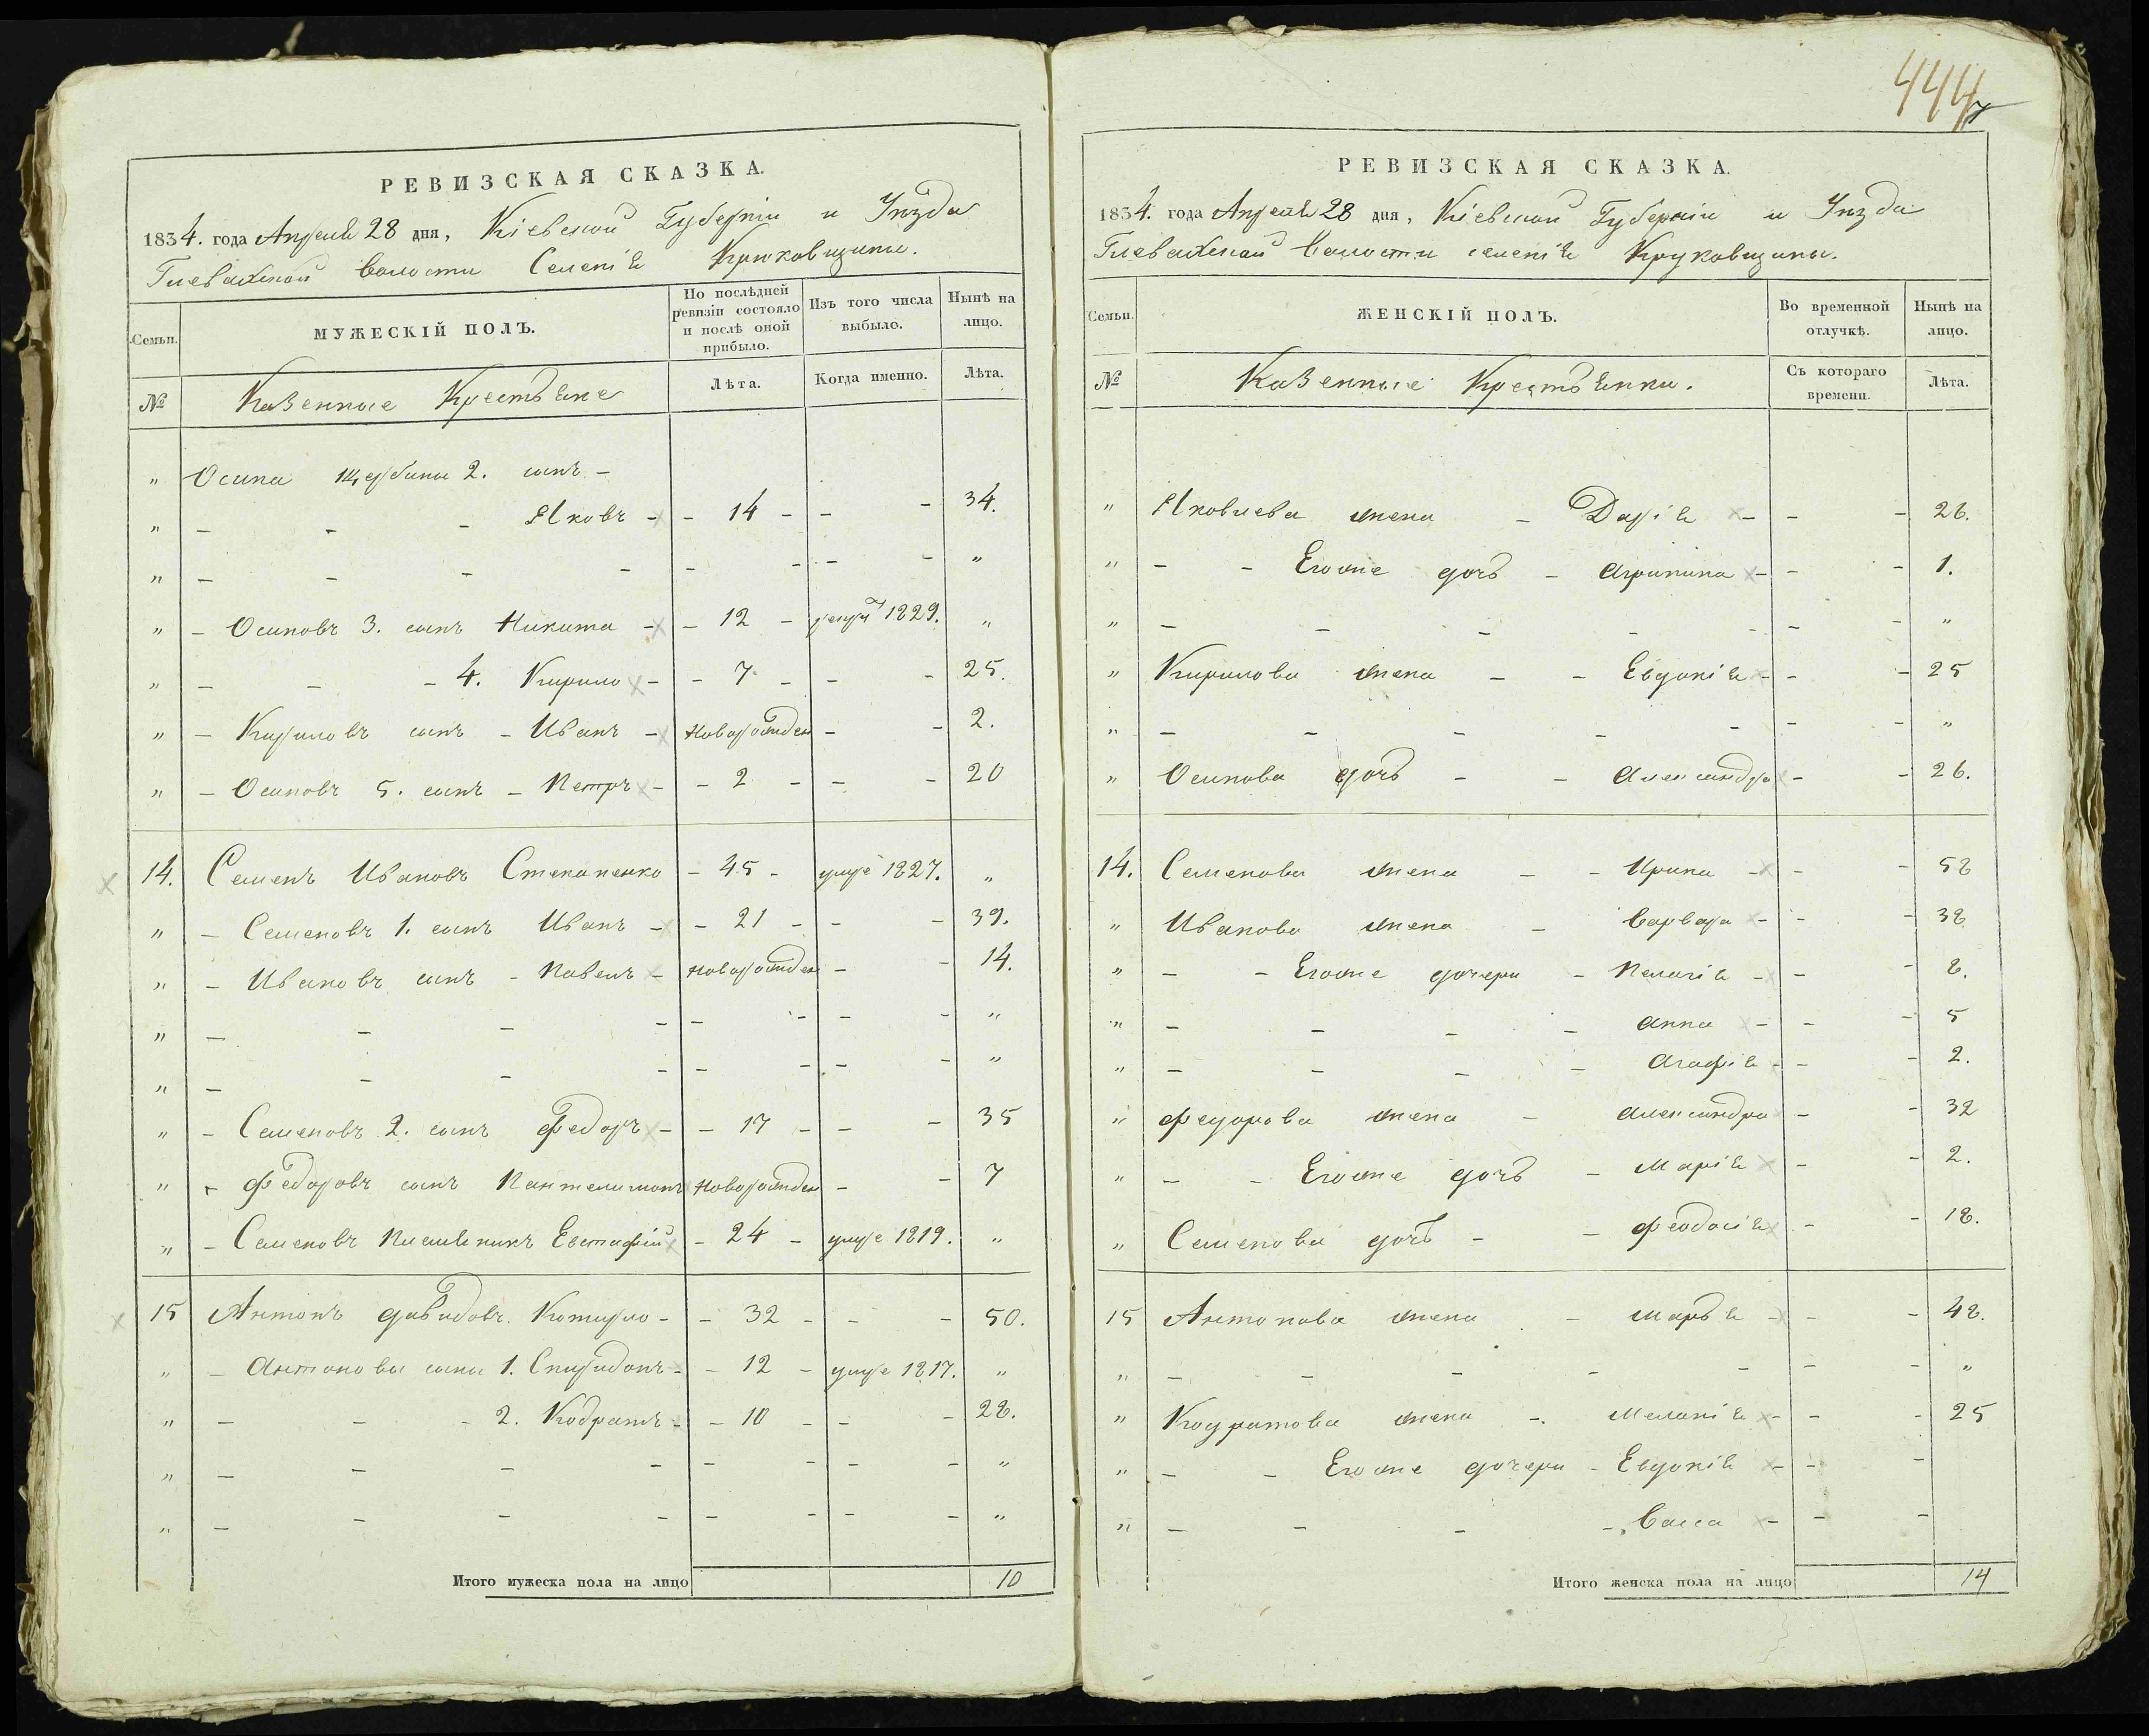 444
РЕВИЗСКАЯ СКАЗКА.
1834. года Апреля 28 дня, Кіевской Губерніи и Уѣзда
Глевахской Волости Селенія Крюковщины.
Семьи.
МУЖЕСКІЙ ПОЛЪ.
По послѣдней ревизіи состояло и послѣ оной прибыло.
Изъ того числа выбыло.
Нынѣ на лицо.
№ Казенные Крестьяне
Лѣта.
Когда именно.
Лѣта.
" Осипа Щербины 2. сынъ -
" - - - Яковъ - - 14 - - - 34.
" - - - - - - - - "
" - Осиповъ 3. сынъ Никита - - 12 - 1829. "
" - - - 4. Кирило - - 7 - - - 25.
" - Кириловъ сынъ - Иванъ - новорожден - - 2.
" - Осиповъ 5. сынъ - Петръ - - 2 - - - 20
14. Семенъ Ивановъ Степаненко - 45 - умре 1827. "
" - Семеновъ 1. сынъ Иванъ - - 21 - - - 39.
" - Ивановъ сынъ - Павелъ - новорожден - - 14.
" - - - - - - - - "
" - - - - - - - - "
" - Семеновъ 2. сынъ Федоръ - - 17 - - - 35
" - Федоровъ сынъ Пантелимонъ новорожден - - 7
" - Семеновъ племяникъ Евстафій - 24 - умре 1819. "
15 Антонъ Давидовъ Котирло - - 32 - - - 50.
" - Антоновы сыны 1. Спиридонъ - - 12 - умре 1817. "
" - - - 2. Кодратъ - - 10 - - - 28.
" - - - - - - - - "
" - - - - - - - - "
Итого мужеска пола на лицо 10
РЕВИЗСКАЯ СКАЗКА.
1834. года Апреля 28 дня, Кіевской Губерніи и Уѣзда
Глевахской Волости селенія Круковщины.
Семьи.
ЖЕНСКІЙ ПОЛЪ.
Во временной отлучкѣ.
Нынѣ на лицо.
№ Казенные Крестьянки.
Съ котораго времени.
Лѣта.
" Яковлева жена - Дарія - - - 26.
" - - Егоже дочь - Агрипина - - - 1.
" - - - - - - - "
" Кирилова жена - - Евдокія - - - 25
" - - - - - - - "
" Осипова дочь - - Александра - - 26.
14. Семенова жена - - Ирина - - - 58
" Иванова жена - Варвара - - - 38
" - - Егоже дочери - Пелагія - - - 8.
" - - - - Анна - - - 5
" - - - - Агафія - - - 2.
" Федорова жена - Александра - - 32
" - - Егоже дочь - Марія - - 2.
" Семенова дочь - - Феодосія - - 18.
15 Антонова жена - Марья - - - 48.
" - - - - - - - "
" Кодратова жена - Меланія - - - 25
" - - Егоже дочери - Евдокія - - -
" - - - - Васса - - -
Итого женска пола на лицо 14